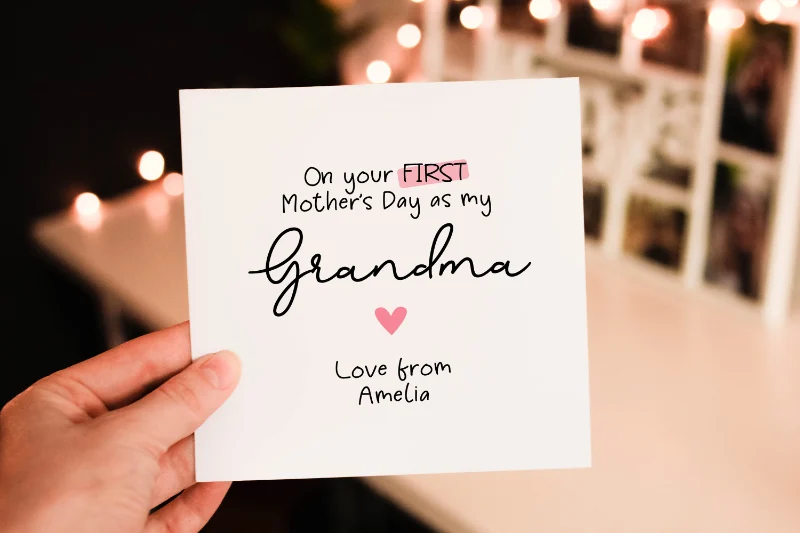 On your FIRST
Mother's Day as my
Grandma
Love from
Amelia